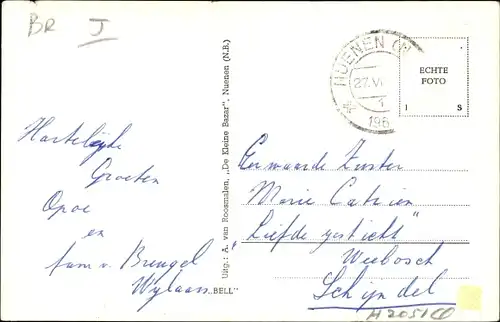 BR J
NUENEN (N
27.VI
1
196
ECHTE
FOTO
I S
Hartelijke
Groeten
Opoe
en
fam v. Brengel
Wylaars
Uitg.: A. van Roosmalen, „De Kleine Bazar”, Nuenen (N.B.)
„BELL”
Eerwaarde Zuster
Marie Catrien
"Liefde gesticht"
Weebosch
Schijndel
H2051